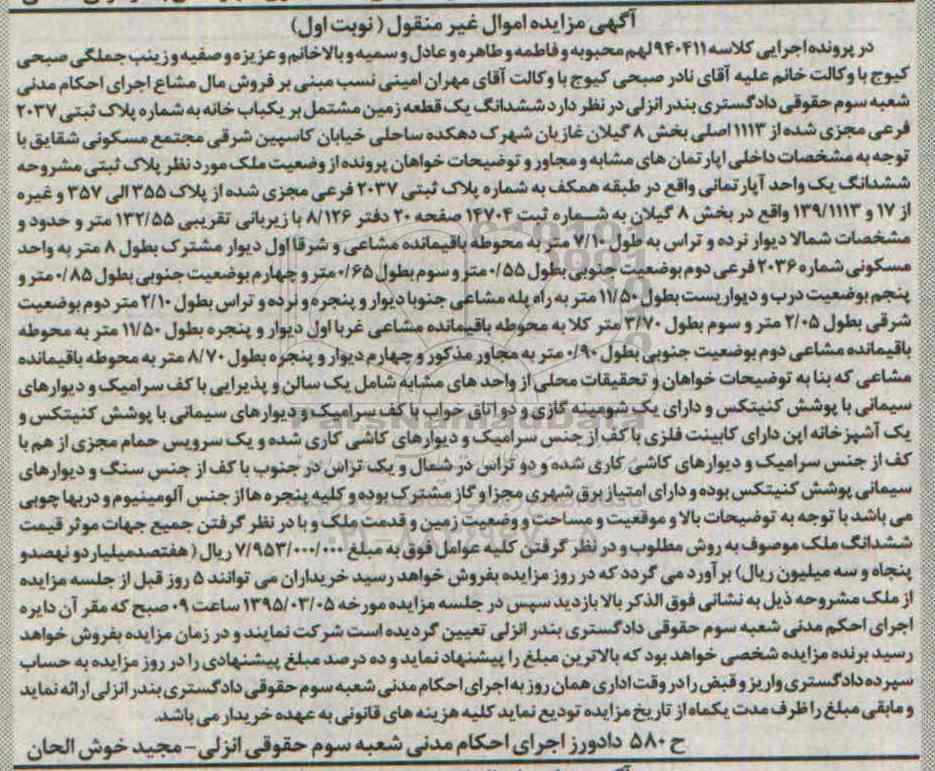 آگهی مزایده اموال غیر منقول ( نوبت اول)
در پرونده اجرایی کلاسه ۹۴۰۴۱۱ لهم محبوبه و فاطمه و طاهره و عادل و سمیه و بالاخانم و عزیزه و صفیه و زینب جملگی صبحی
کیوج با وکالت خانم علیه آقای نادر صبحی کیوج با وکالت آقای مهران امینی نسب مبنی بر فروش مال مشاع اجرای احکام مدنی
شعبه سوم حقوقی دادگستری بندر انزلی در نظر دارد ششدانگ یک قطعه زمین مشتمل بر یکباب خانه به شماره پلاک ثبتی ۲۰۳۷
فرعی مجزی شده از ۱۱۱۳ اصلی بخش ۸ گیلان غازیان شهرک دهکده ساحلی خیابان کاسپین شرقی مجتمع مسکونی شقایق با
توجه به مشخصات داخلی اپارتمان های مشابه و مجاور و توضیحات خواهان پرونده از وضعیت ملک مورد نظر پلاک ثبتی مشروحه
ششدانگ یک واحد آپارتمانی واقع در طبقه همکف به شماره پلاک ثبتی ۲۰۳۷ فرعی مجزی شده از پلاک ۳۵۵ الی ۳۵۷ و غیره
از ۱۷ و ۱۳۹/۱۱۱۳ واقع در بخش ۸ گیلان به شماره ثبت ۱۴۷۰۴ صفحه ۲۰ دفتر ۸/۱۲۶ با زیربانی تقریبی ۱۳۲/۵۵ متر و حدود و
مشخصات شمالا دیوار نرده و تراس به طول ۷/۱۰ متر به محوطه باقیمانده مشاعی و شرقا اول دیوار مشترک بطول ۸ متر به واحد
مسکونی شماره ۲۰۳۶ فرعی دوم بوضعیت جنوبی بطول ۰/۵۵ متر و سوم بطول ۰/۶۵ متر و چهارم بوضعیت جنوبی بطول ۰/۸۵ متر و
پنجم بوضعیت درب و دیواریست بطول ۱۱/۵۰ متر به راه پله مشاعی جنوبا دیوار و پنجره و نرده و تراس بطول ۲/۱۰ متر دوم بوضعیت
شرقی بطول ۲/۰۵ متر و سوم بطول ۳/۷۰ متر کلا به محوطه باقیمانده مشاعی غربا اول دیوار و پنجره بطول ۱۱/۵۰ متر به محوطه
باقیمانده مشاعی دوم بوضعیت جنوبی بطول ۰/۹۰ متر به مجاور مذکور و چهارم دیوار و پنجره بطول ۸/۷۰ متر به محوطه باقیمانده
مشاعی که بنا به توضیحات خواهان و تحقیقات محلی از واحد های مشابه شامل یک سالن و پذیرایی با کف سرامیک و دیوارهای
سیمانی با پوشش کنیتکس و دارای یک شومینه گازی و دو اتاق خواب با کف سرامیک و دیوارهای سیمانی با پوشش کنیتکس و
یک آشپزخانه اپن دارای کابینت فلزی با کف از جنس سرامیک و دیوارهای کاشی کاری شده و یک سرویس حمام مجزی از هم با
کف از جنس سرامیک و دیوارهای کاشی کاری شده و دو تراس در شمال و یک تراس در جنوب با کف از جنس سنگ و دیوارهای
سیمانی پوشش کنیتکس بوده و دارای امتیاز برق شهری مجزا و گاز مشترک بوده و کلیه پنجره ها از جنس آلومینیوم و دربها چوبی
می باشد با توجه به توضیحات بالا و موقعیت و مساحت و وضعیت زمین و قدمت ملک و با در نظر گرفتن جمیع جهات موثر قیمت
ششدانگ ملک موصوف به روش مطلوب و در نظر گرفتن کلیه عوامل فوق به مبلغ ۷/۹۵۳/۰۰۰/۰۰۰ ریال ( هفتصد میلیارد و نهصدو
پنجاه و سه میلیون ریال) برآورد می گردد که در روز مزایده بفروش خواهد رسید خریداران می توانند ۵ روز قبل از جلسه مزایده
از ملک مشروحه ذیل به نشانی فوق الذکر بالا بازدید سپس در جلسه مزایده مورخه ۱۳۹۵/۰۳/۰۵ ساعت ۰۹ صبح که مقر آن دایره
اجرای احکم مدنی شعبه سوم حقوقی دادگستری بندر انزلی تعیین گردیده است شرکت نمایند و در زمان مزایده بفروش خواهد
رسید برنده مزایده شخصی خواهد بود که بالاترین مبلغ را پیشنهاد نماید و ده درصد مبلغ پیشنهادی را در روز مزایده به حساب
سپرده دادگستری واریز و قبض را در وقت اداری همان روز به اجرای احکام مدنی شعبه سوم حقوقی دادگستری بندر انزلی ارائه نماید
و مابقی مبلغ را ظرف مدت یکماه از تاریخ مزایده تودیع نماید کلیه هزینه های قانونی به عهده خریدار می باشد.
ح ۵۸۰ دادورز اجرای احکام مدنی شعبه سوم حقوقی انزلی - مجید خوش الحان